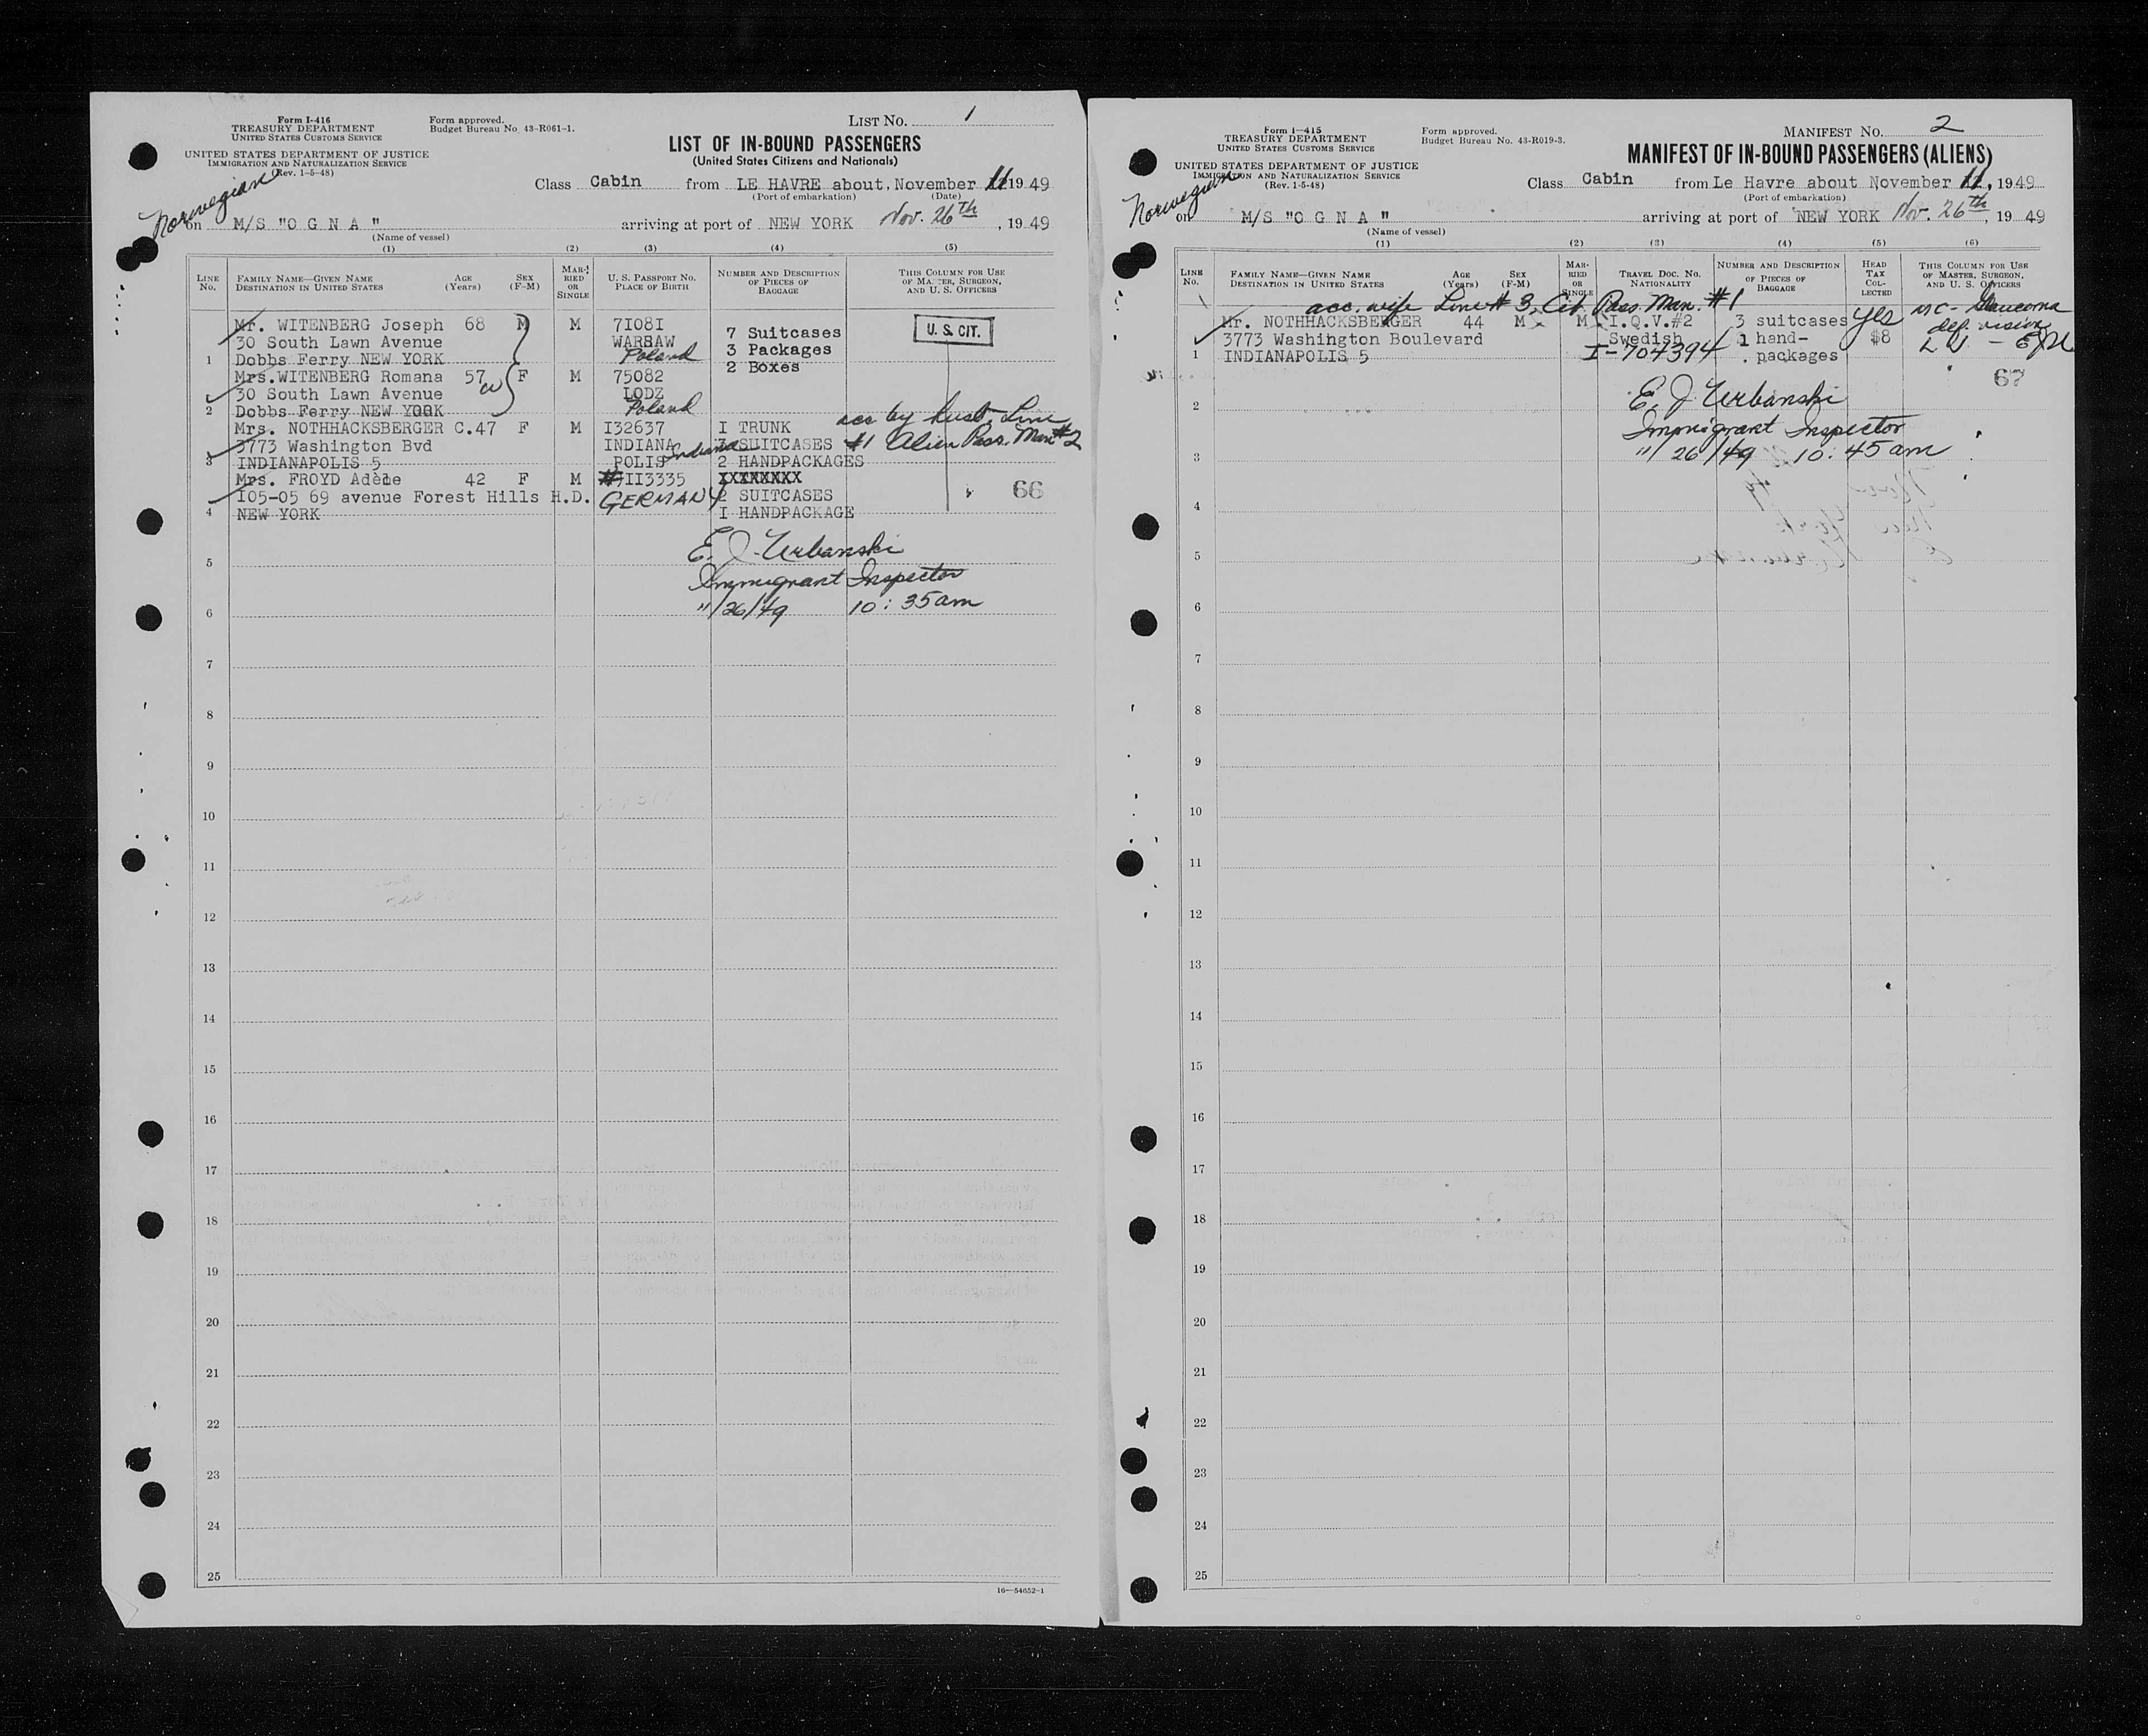 Form I-416
TREASURY DEPARTMENT
UNITED STATES CUSTOMS SERVICE
UNITED STATES DEPARTMENT OF JUSTICE
IMMIGRATION AND NATURALIZATION SERVICE
(Rev. 1-5-48)
Form approved.
Budget Bureau No. 43-R061-1.
LIST NO. 1
LIST OF IN-BOUND PASSENGERS
(United States Citizens and Nationals)
Class Cabin from LE HAVRE about, November 11 1949
(Port of embarkation) (Date)
Norwegian
on M/S "O G N A" arriving at port of NEW YORK Nov. 26th, 1949
(Name of vessel)
(1) (2) (3) (4) (5)
LINE NO.
FAMILY NAME—GIVEN NAME
DESTINATION IN UNITED STATES
AGE (Years)
SEX (F-M)
MARRIED OR SINGLE
U. S. PASSPORT NO.
PLACE OF BIRTH
NUMBER AND DESCRIPTION OF PIECES OF BAGGAGE
THIS COLUMN FOR USE OF MASTER, SURGEON, AND U. S. OFFICERS
Mr. WITENBERG Joseph 68 M M 7I08I 7 Suitcases U. S. CIT.
30 South Lawn Avenue WARSAW 3 Packages
1 Dobbs Ferry NEW YORK Poland 2 Boxes
Mrs.WITENBERG Romana 57 F M 75082
30 South Lawn Avenue LODZ
2 Dobbs Ferry NEW YORK Poland
Mrs. NOTHHACKSBERGER C.47 F M I32637 I TRUNK acc by husb, Line
3773 Washington Bvd INDIANA Indiana 3 SUITCASES #1 Alien Pass. Man #2
3 INDIANAPOLIS 5 POLIS 2 HANDPACKAGES
Mrs. FROYD Adèle 42 F M #II3335 XXXXXXXX
I05-05 69 avenue Forest Hills H.D. GERMANY 2 SUITCASES 66
4 NEW YORK I HANDPACKAGE
E. J. Urbanski
5
Immigrant Inspector
6 11/26/49 10:35am
7
8
9
10
11
12
13
14
15
16
17
18
19
20
21
22
23
24
25
16—54652-1
Form I-415
TREASURY DEPARTMENT
UNITED STATES CUSTOMS SERVICE
UNITED STATES DEPARTMENT OF JUSTICE
IMMIGRATION AND NATURALIZATION SERVICE
(Rev. 1-5-48)
Form approved.
Budget Bureau No. 43-R019-3.
MANIFEST NO. 2
MANIFEST OF IN-BOUND PASSENGERS (ALIENS)
Class Cabin from Le Havre about November 11, 1949
(Port of embarkation)
Norwegian
on M/S "O G N A" arriving at port of NEW YORK Nov. 26th, 1949
(Name of vessel)
(1) (2) (3) (4) (5) (6)
LINE NO.
FAMILY NAME—GIVEN NAME
DESTINATION IN UNITED STATES
AGE (Years)
SEX (F-M)
MARRIED OR SINGLE
TRAVEL DOC. NO.
NATIONALITY
NUMBER AND DESCRIPTION OF PIECES OF BAGGAGE
HEAD TAX COLLECTED
THIS COLUMN FOR USE OF MASTER, SURGEON, AND U. S. OFFICERS
acc. wife Line # 3, Cit Pass. Man. #1
Mr. NOTHHACKSBERGER 44 M M I.Q.V.#2 3 suitcases yes MC - Glaucoma
3773 Washington Boulevard Swedish 1 hand- $8 def. vision
1 INDIANAPOLIS 5 I-704394 packages
67
E. J. Urbanski
2
Immigrant Inspector
3 11/26/49 10:45am
4
5
6
7
8
9
10
11
12
13
14
15
16
17
18
19
20
21
22
23
24
25